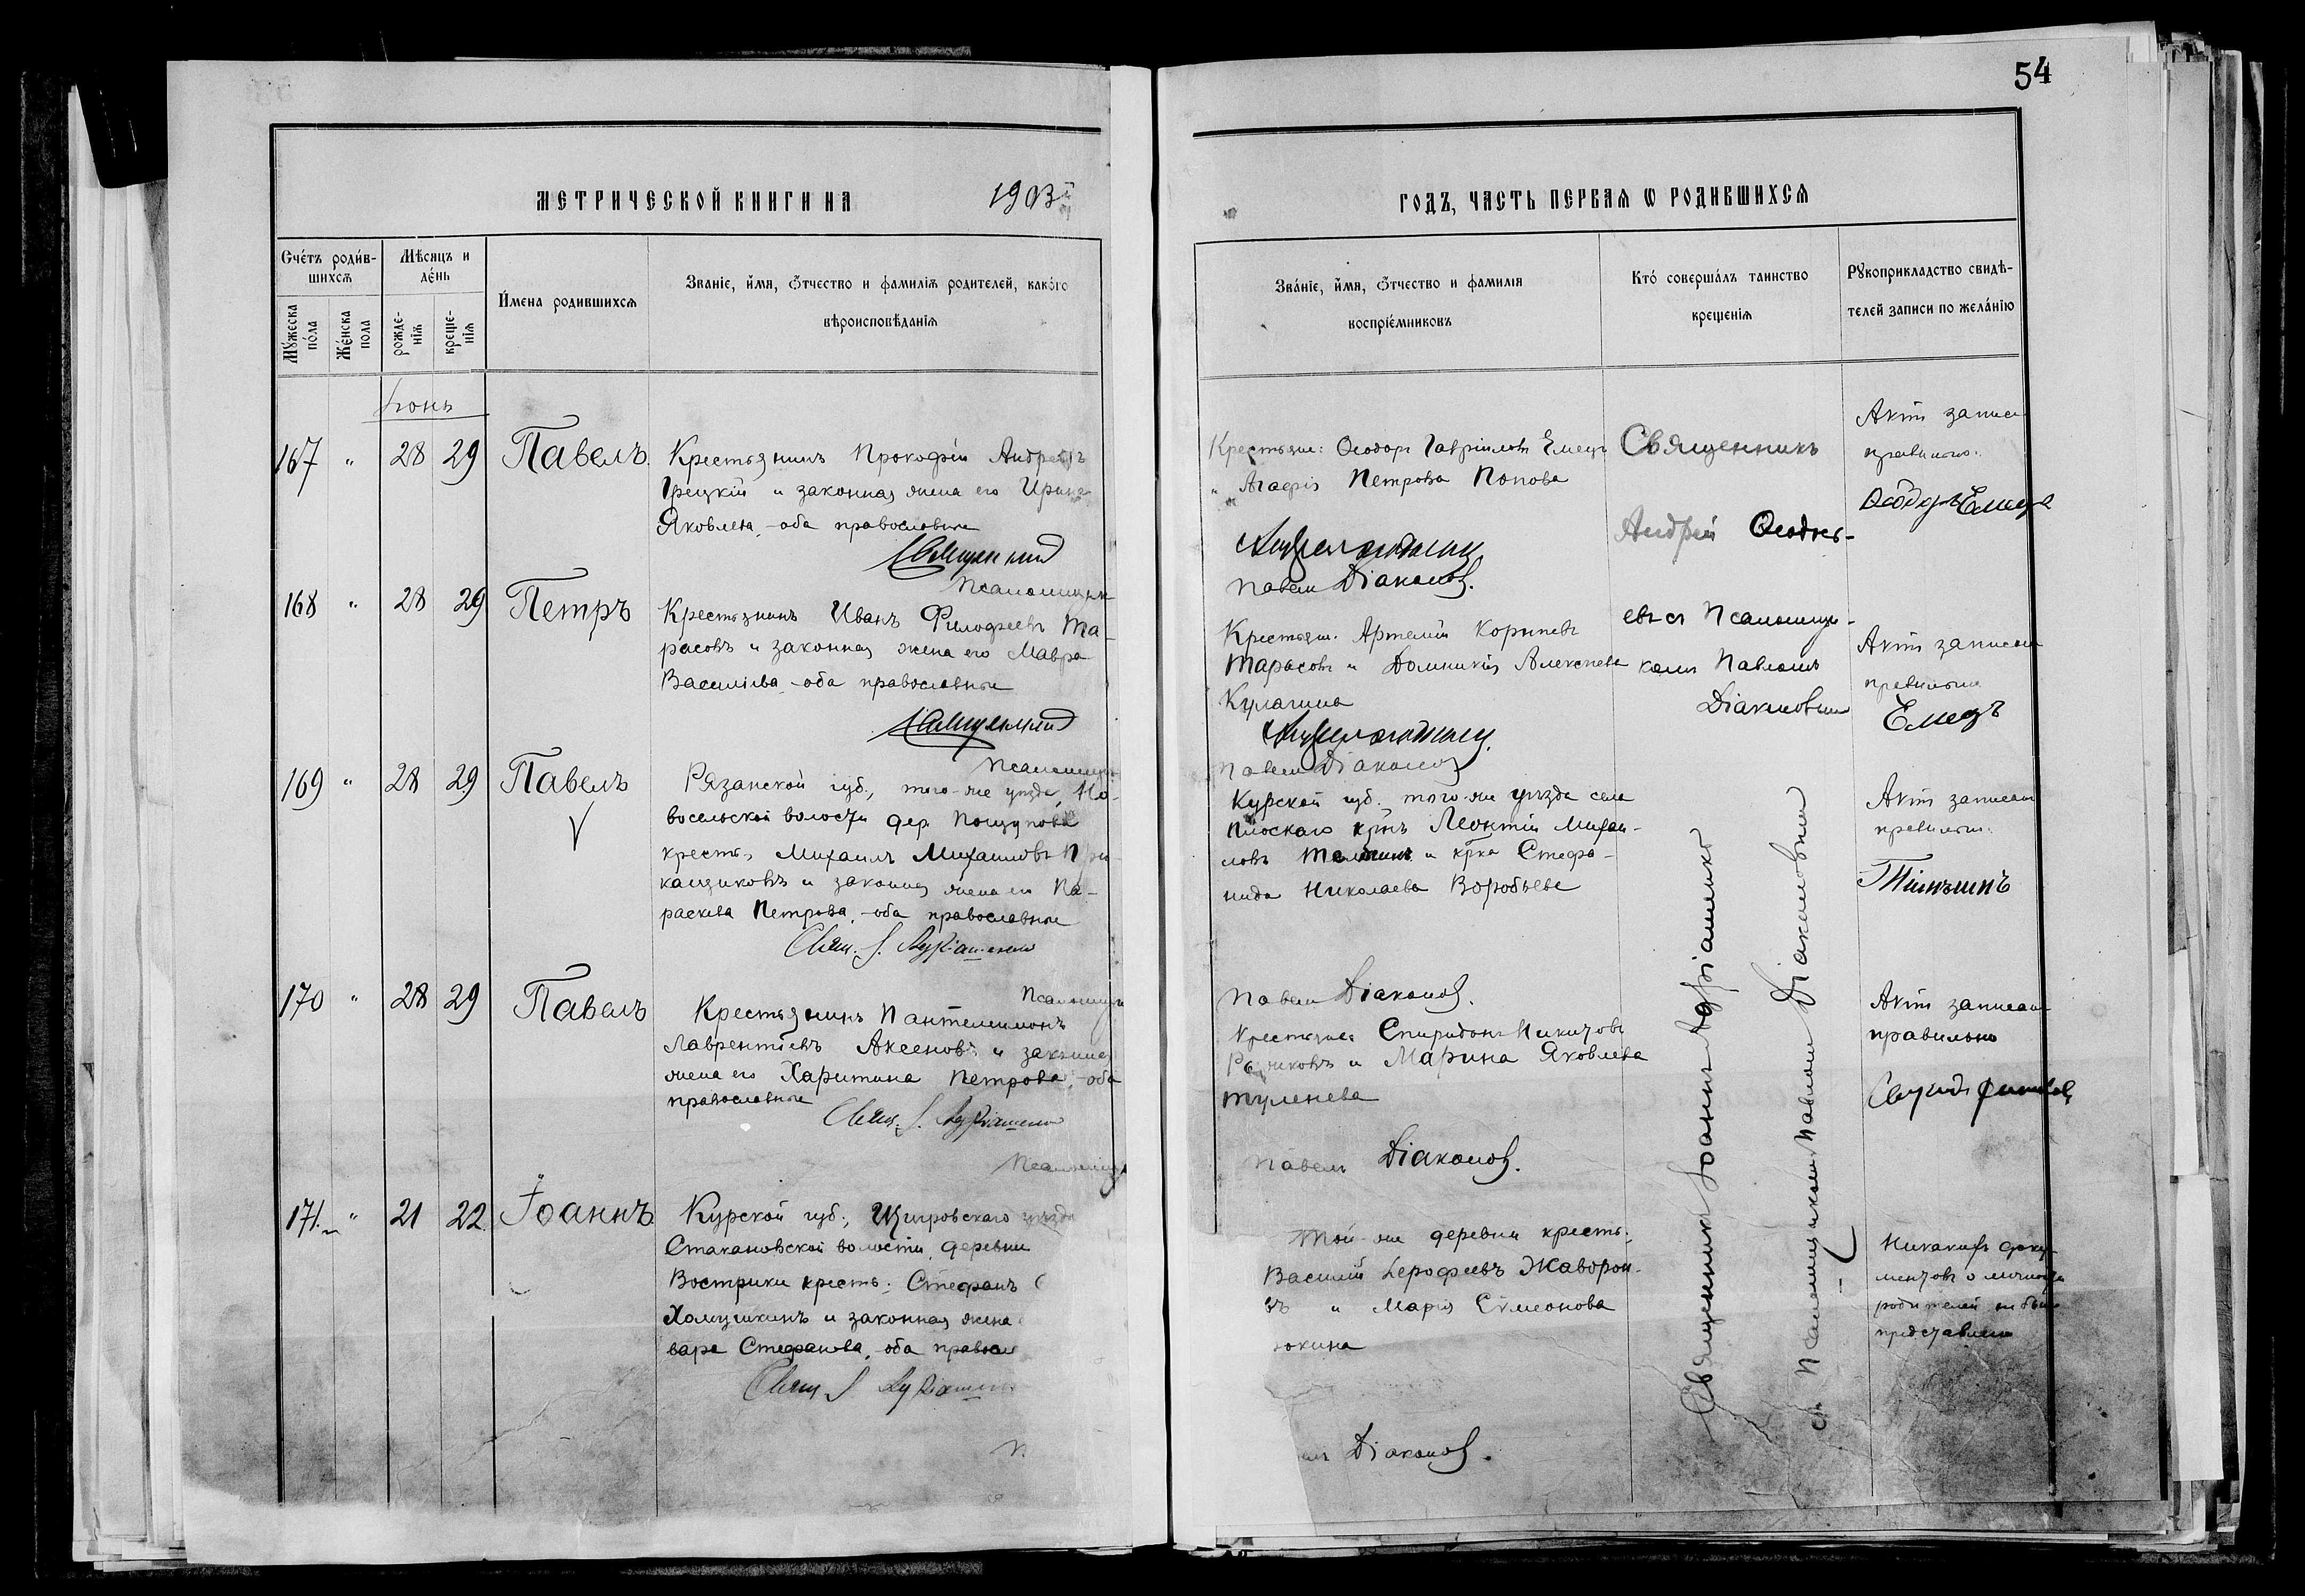 54
МЕТРИЧЕСКОЙ КНИГИ НА 1903й
ГОДЪ, ЧАСТЬ ПЕРВАЯ Ѡ РОДИВШИХСЯ
Счетъ родив-
шихся
Мужеска
пола
Женска
пола
Мѣсяцъ и
день
рожде-
нія
креще-
нія
Имена родившихся
Званіе, имя, отчество и фамилія родителей, какого
вѣроисповѣданія
Званіе, имя, отчество и фамилія
воспріемниковъ
Кто совершалъ таинство
крещенія
Рукоприкладство свидѣ-
телей записи по желанію
Іюнь
167 " 28 29 Павелъ
Крестьянинъ Прокофій Андреевъ
Грецкій и законная жена его Ирина
Яковлева, - оба православные
Священникъ
Псаломщикъ
Крестьяне: Ѳеодоръ Гавріиловъ Емецъ
" Агафія Петрова Попова
Павелъ Діаконовъ.
Священникъ
Андрей Ѳеодос-
евъ съ Псаломщи-
комъ Павломъ
Діаконовымъ
Актъ записа
правильно.
Ѳеодоръ Емецъ
168 " 28 29 Петръ
Крестьянинъ Иванъ Филофеевъ Та-
расовъ и законная жена его Мавра
Василіева, - оба православные
Священникъ
Псаломщи
Крестьян. Артемій Корнѣевъ
Тарасовъ и Домникія Алексѣева
Кулагина
Павелъ Діаконовъ
Актъ записан
правильно
Емецъ
169 " 28 29 Павелъ
Рязанской губ., того-же уѣзда, Но-
восельской волости дер. Пощупова
кресть, Михаилъ Михаиловъ При-
кащиковъ и законная жена его Па-
раскева Петрова, - оба православные
Свящ. І.
Псаломщи
Курской губ. того-же уѣзда села
Плоскаго кр-нъ Леонтій Михаи-
ловъ и кр-ка Стефа-
нида Николаева Воробьева
Павелъ Діаконовъ.
Актъ записан
правильно.
170 " 28 29 Павелъ
Крестьянинъ Пантелеимонъ
Лаврентіевъ Аксеновъ и законная
жена его Харитина Петрова, - оба
православные
Свящ. І.
Псаломщ
Крестьяне: Спиридонъ Никитовъ
и Марина Яковлева
Туленева
Павелъ Діаконовъ.
Актъ записан
правильно
171. " 21 22 Іоаннъ
Курской губ., Щигровскаго уѣзда
Стакановской волости, деревни
Вострики кресть. Стефанъ
Хомушкинъ и законная жена
вара Стефанова, оба правосл
Свящ. І.
Той-же деревни кресть.
Василій Іерофеевъ Жаворон-
въ и Марія Сѵмеонова
окина
Діаконовъ.
Священникъ Іоаннъ
съ Псаломщикомъ Павломъ Діаконовымъ
Никакихъ доку-
ментовъ о личности
родителей не было
представлено